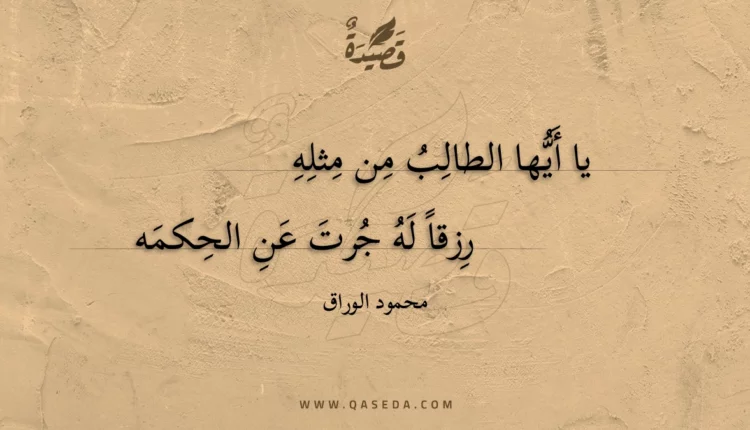 قَصِيدَةٌ
يا أَيُّها الطالِبُ مِن مِثلِهِ
رِزقاً لَهُ جُرتَ عَنِ الحِكمَه
محمود الوراق
WWW.QASEDA.COM